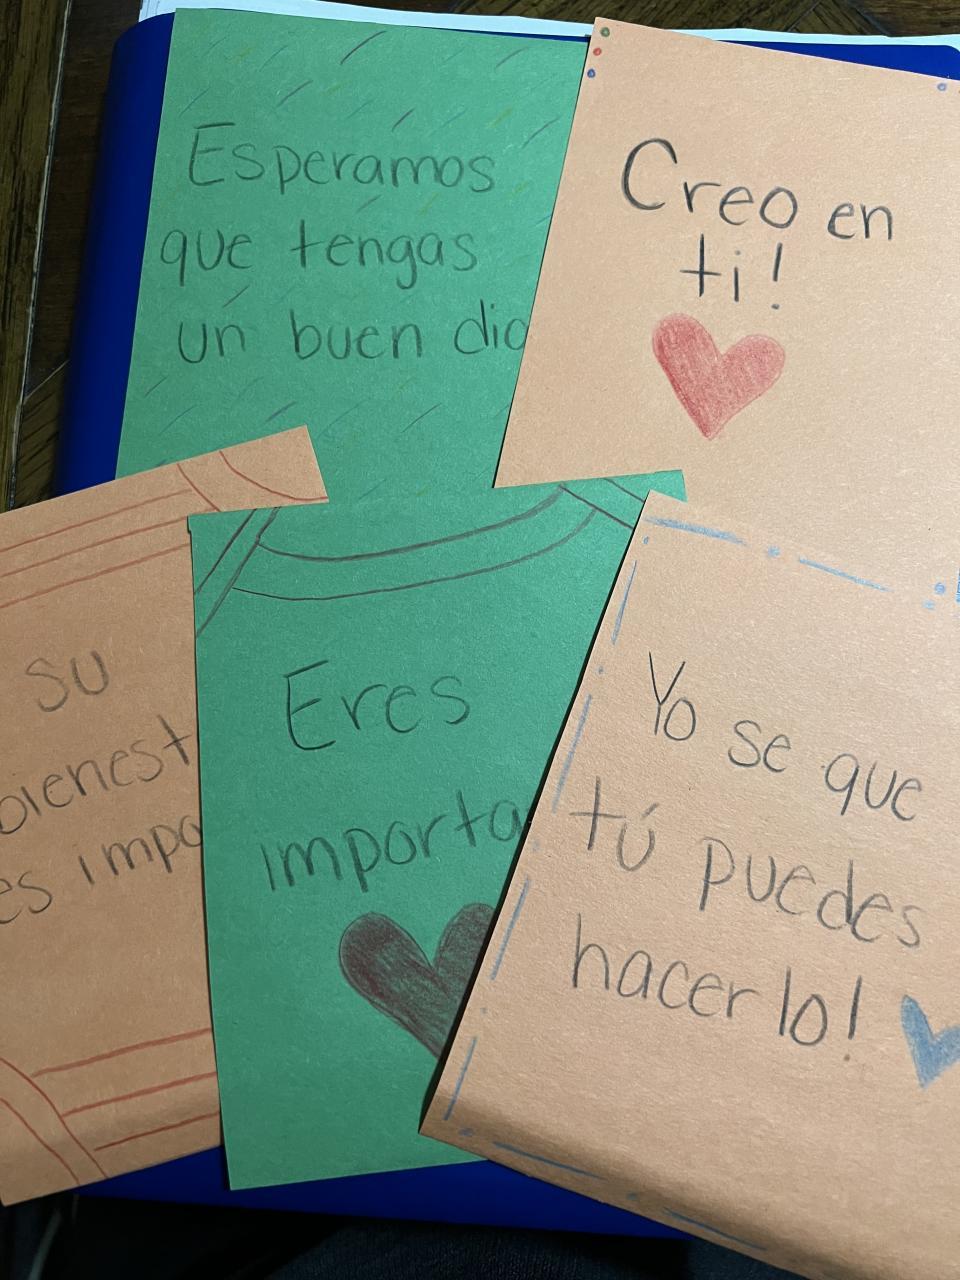 Esperamos
que tengas
un buen dia
Creo en
ti!
su
bienest
es impo
Eres
importa
Yo se que
tú puedes
hacerlo!